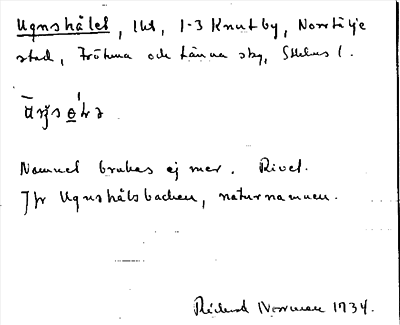 Ugnshålet, lht, 1-3 Knutby, Norrtälje
stad, Frötuna och Länna skg, Sthlms l.
Namnet brukas ej mer. Rivet.
Jfr Ugnshålsbacken, naturnamnen.
Rickard Norrman 1934.